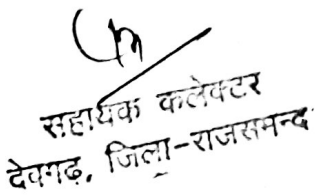 सहायक कलेक्टर
देवगढ़, जिला-राजसमन्द